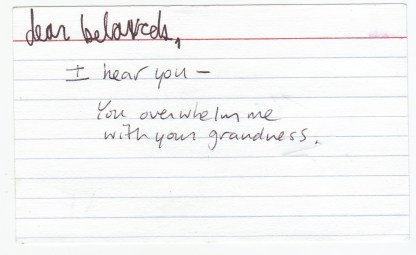 dear beloveds,
I hear you –
You overwhelm me
with your grandness.